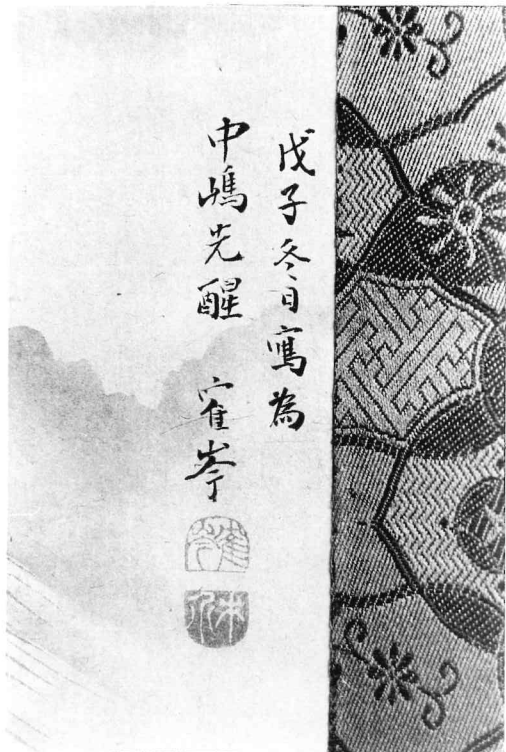 戊子冬日寫為
中嶋先醒 寉岑